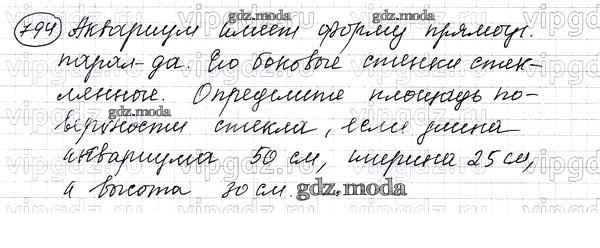 794 Аквариум имеет форму прямоуг.
парал-да. Его боковые стенки стек-
лянные. Определите площадь по-
верхности стекла, если длина
аквариума 50 см, ширина 25 см,
а высота 30 см.
gdz.moda
gdz.moda
gdz.moda
gdz.moda
gdz.moda